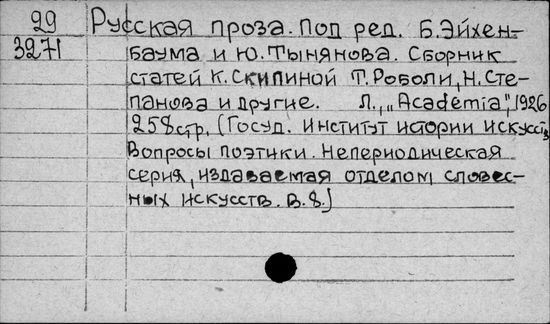 29
3271
Русская проза. Под ред. Б. Эйхен-
баума и Ю. Тынянова. Сборник
статей К. Скипиной Т. Роболи, Н. Сте-
панова и другие. Л., „Academia", 1926
258 стр. (Госуд. институт истории искусств
Вопросы поэтики. Непериодическая
серия, издаваемая отделом словес-
ных искусств. В. 8.)